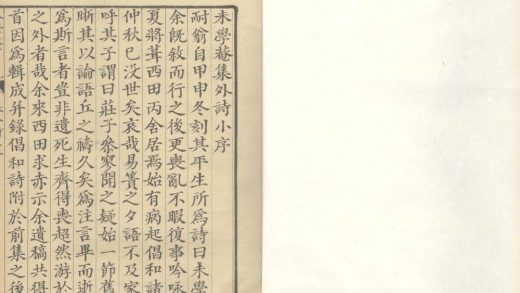 未學菴集外詩小序
耐翁自甲申冬刻其平生所為詩曰未學
余旣敘而行之後更喪亂不暇復事吟咏
夏將葺西田丙舍居焉始有病起倡和諸
仲秋已没世矣哀哉易簀之夕語不及家
呼其子謂曰莊子叅寥聞之疑始一節舊
晰其以論語丘之禱久矣為注言畢而逝
為斯言者豈非遺死生齊得喪超然游於
之外者哉余來西田求赤示余遺稿共得
首因為輯成并錄倡和詩附於前集之後